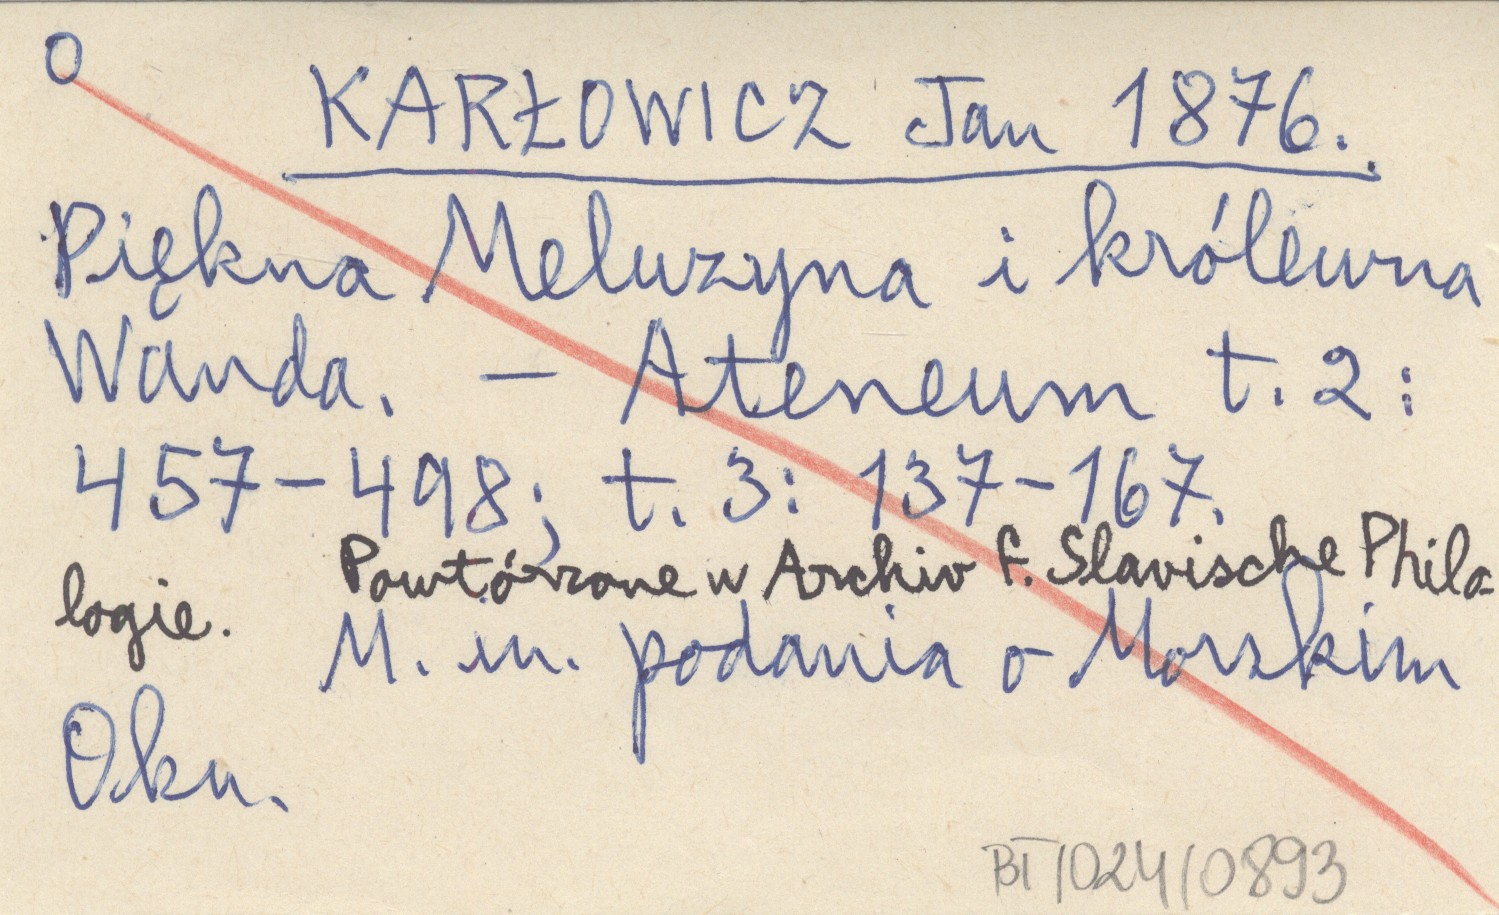 O
KARŁOWICZ Jan 1876.
Piękna Meluzyna i królewna
Wanda. - Ateneum t. 2:
457-498; t. 3: 137-167.
Powtórzone w Archiv f. Slavische Philo-
logie.
M. in. podania o Morskim
Oku.
BT/024/0893